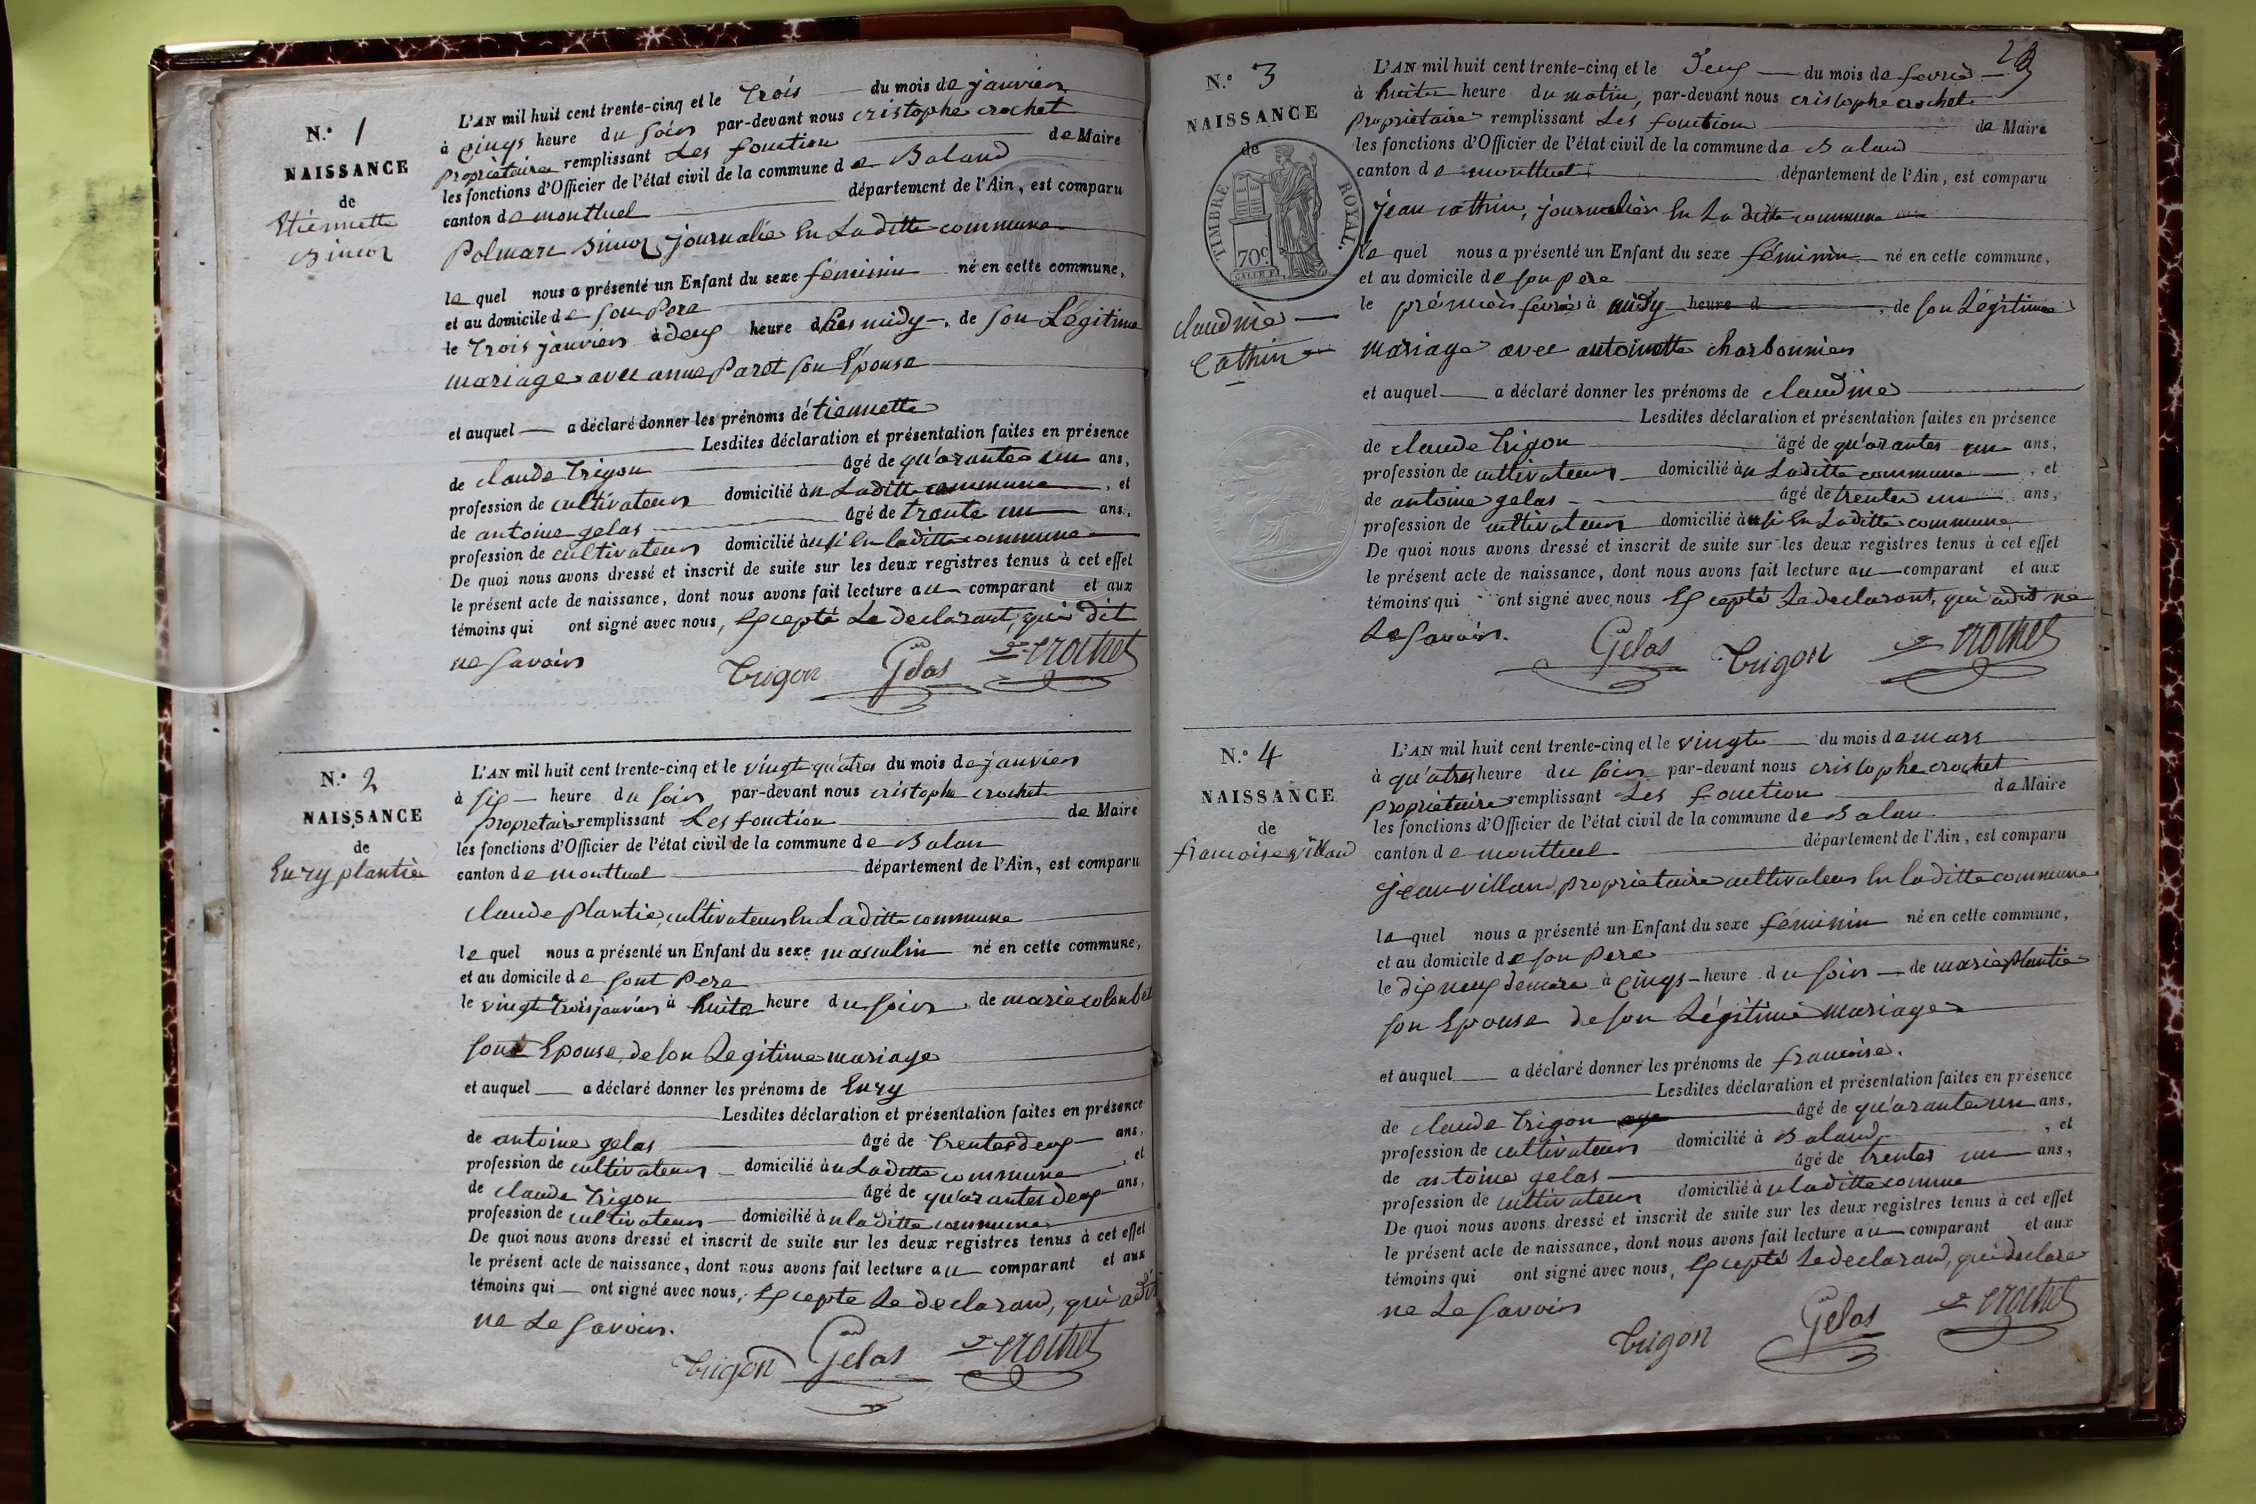 N.° 1
NAISSANCE
de
Etiennette
Simon
L'AN mil huit cent trente-cinq et le trois du mois de janvier
à cinqs heure du soir par-devant nous cristophe crochet
propriétaire remplissant Les fonction de Maire
les fonctions d'Officier de l'état civil de la commune de Baland
canton de montluel département de l'Ain, est comparu
journalié En Laditte commune
le quel nous a présenté un Enfant du sexe féminin né en cette commune,
et au domicile de son Pere
le trois janvier à deux heure dpres midy, de son Légitime
mariage avec anne Parot son Epouse
et auquel a déclaré donner les prénoms détiennette
Lesdites déclaration et présentation faites en présence
de claude trigon âgé de qu'arante un ans,
profession de cultivateur domicilié àn Laditte commune, et
de antoine gelas âgé de trante un ans,
profession de cultivateur domicilié àusi En laditte commune
De quoi nous avons dressé et inscrit de suite sur les deux registres tenus à cet effet
le présent acte de naissance, dont nous avons fait lecture au comparant et aux
témoins qui ont signé avec nous, Excepté Le declarant, qui dit
ne savoir
trigon Gelas crochet
N.° 2
NAISSANCE
de
Enry plantié
L'AN mil huit cent trente-cinq et le vingt qu'atres du mois de janvier
à six heure du soir par-devant nous cristophe crochet
propretaire remplissant Les fonction de Maire
les fonctions d'Officier de l'état civil de la commune de Balan
canton de montluel département de l'Ain, est comparu
claude plantie, cultivateur En Laditte commune
le quel nous a présenté un Enfant du sexe masculin né en cette commune,
et au domicile de sont Pere
le vingt trois janvier à huite heure du soir, de marie colonbet
sont Epouse, de son Legitime mariage
et auquel a déclaré donner les prénoms de Enry
Lesdites déclaration et présentation faites en présence
de antoine gelas âgé de trentes deux ans,
profession de cultivateur domicilié àn Laditte commune, et
de claude trigon âgé de qu'arantes deux ans,
profession de cultivateur domicilié àn laditte commune
De quoi nous avons dressé et inscrit de suite sur les deux registres tenus à cet effet
le présent acte de naissance, dont nous avons fait lecture au comparant et aux
témoins qui ont signé avec nous, Excepte Le declarand, qui a dit
ne Le savoir.
trigon Gelas crochet
N.° 3
NAISSANCE
de
TIMBRE ROYAL.
70c.
claudine
Cathin
L'AN mil huit cent trente-cinq et le deux du mois de fevrié
à huite heure du matin, par-devant nous cristophe crochet
propriétaire remplissant Les fonction de Maire
les fonctions d'Officier de l'état civil de la commune de Baland
canton de montluel département de l'Ain, est comparu
jean cathin, journalier En La ditte commune
le quel nous a présenté un Enfant du sexe féminin né en cette commune,
et au domicile de son pere
le prémier fevrié à midy heure d, de son Légitime
mariage avec antoinette charbonnier
et auquel a déclaré donner les prénoms de claudine
Lesdites déclaration et présentation faites en présence
de claude trigon âgé de qu'arantes un ans,
profession de cultivateur domicilié àn Laditte commune, et
de antoine gelas âgé de trente un ans,
profession de cultivateur domicilié àusi En Laditte commune
De quoi nous avons dressé et inscrit de suite sur les deux registres tenus à cet effet
le présent acte de naissance, dont nous avons fait lecture au comparant et aux
témoins qui ont signé avec nous Excepté Le declarant, qui a dit ne
Le savoir.
Gelas trigon crochet
N.° 4
NAISSANCE
de
francoise villand
L'AN mil huit cent trente-cinq et le vingt du mois de mars
à qu'atres heure du soir par-devant nous cristophe crochet
propriétaire remplissant Les fonction de Maire
les fonctions d'Officier de l'état civil de la commune de Balan
canton de montluel département de l'Ain, est comparu
jean villand, propriétaire cultivateur En laditte commune
le quel nous a présenté un Enfant du sexe féminin né en cette commune,
et au domicile de son Pere
le dix neuf demars à cinqs heure du soir de marie plantié
son Epouse de son Légitime mariage
et auquel a déclaré donner les prénoms de francoise.
Lesdites déclaration et présentation faites en présence
de claude trigon âgé de qu'arante un ans,
profession de cultivateur domicilié à Baland, et
de antoine gelas âgé de trentes un ans,
profession de cultivateur domicilié à n laditte comune
De quoi nous avons dressé et inscrit de suite sur les deux registres tenus à cet effet
le présent acte de naissance, dont nous avons fait lecture au comparant et aux
témoins qui ont signé avec nous, Excepté Le declarand, qui declare
ne Le savoir
trigon Gelas crochet